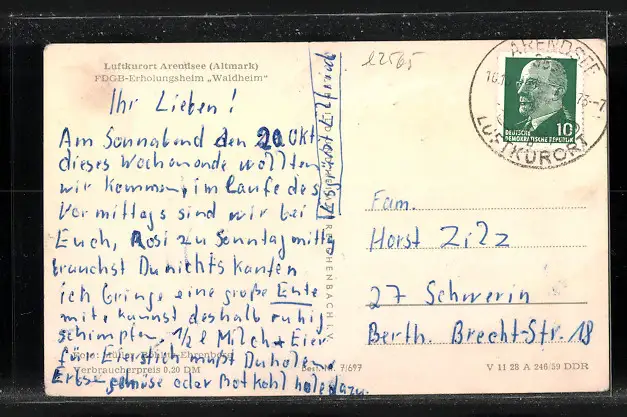 Luftkurort Arendsee (Altmark)
FDGB-Erholungsheim „Waldheim“
Ihr Lieben!
Am Sonnabend den 20 Okt
dieses Wochenende wollten
wir kommen, im Laufe des
Vormittags sind wir bei
Euch, Rosi zu Sonntagmittag
brauchst Du nichts kaufen
ich bringe eine große Ente
mit kannst deshalb ruhig
schimpfen. 1/2 l Milch + Eier
für Eierstich mußt Du holen
Erbsgemüse oder Rotkohl hole dazu.
Verbraucherpreis 0,20 DM
Best.-Nr. 7/697
REICHENBACH I. V.
12565
ARENDSEE
LUFTKURORT
DEUTSCHE
DEMOKRATISCHE REPUBLIK
10
Fam.
Horst Zilz
27 Schwerin
Berth. Brecht-Str. 18
V 11 28 A 246/59 DDR